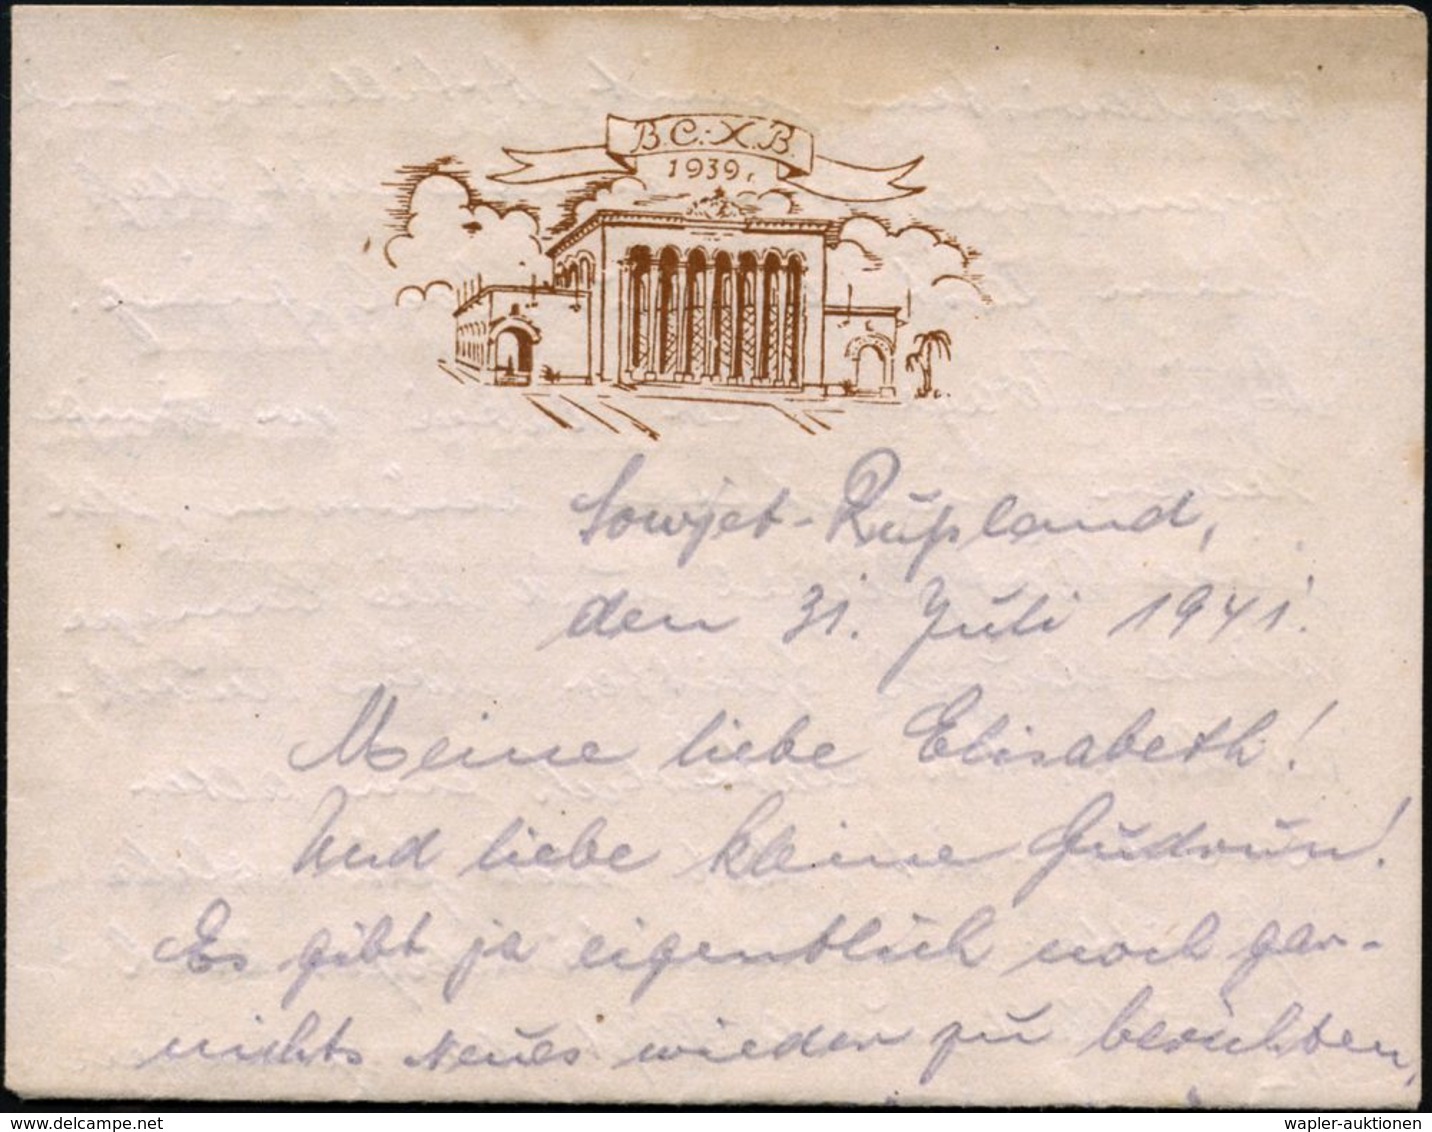 В.С.-Х.В.
1939 г.
Sowjet-Rußland,
den 31. Juli 1941.
Meine liebe Elisabeth!
Und liebe kleine Gudrun!
Es gibt ja eigentlich noch gar-
nichts Neues wieder zu berichten,
wapler-auktionen